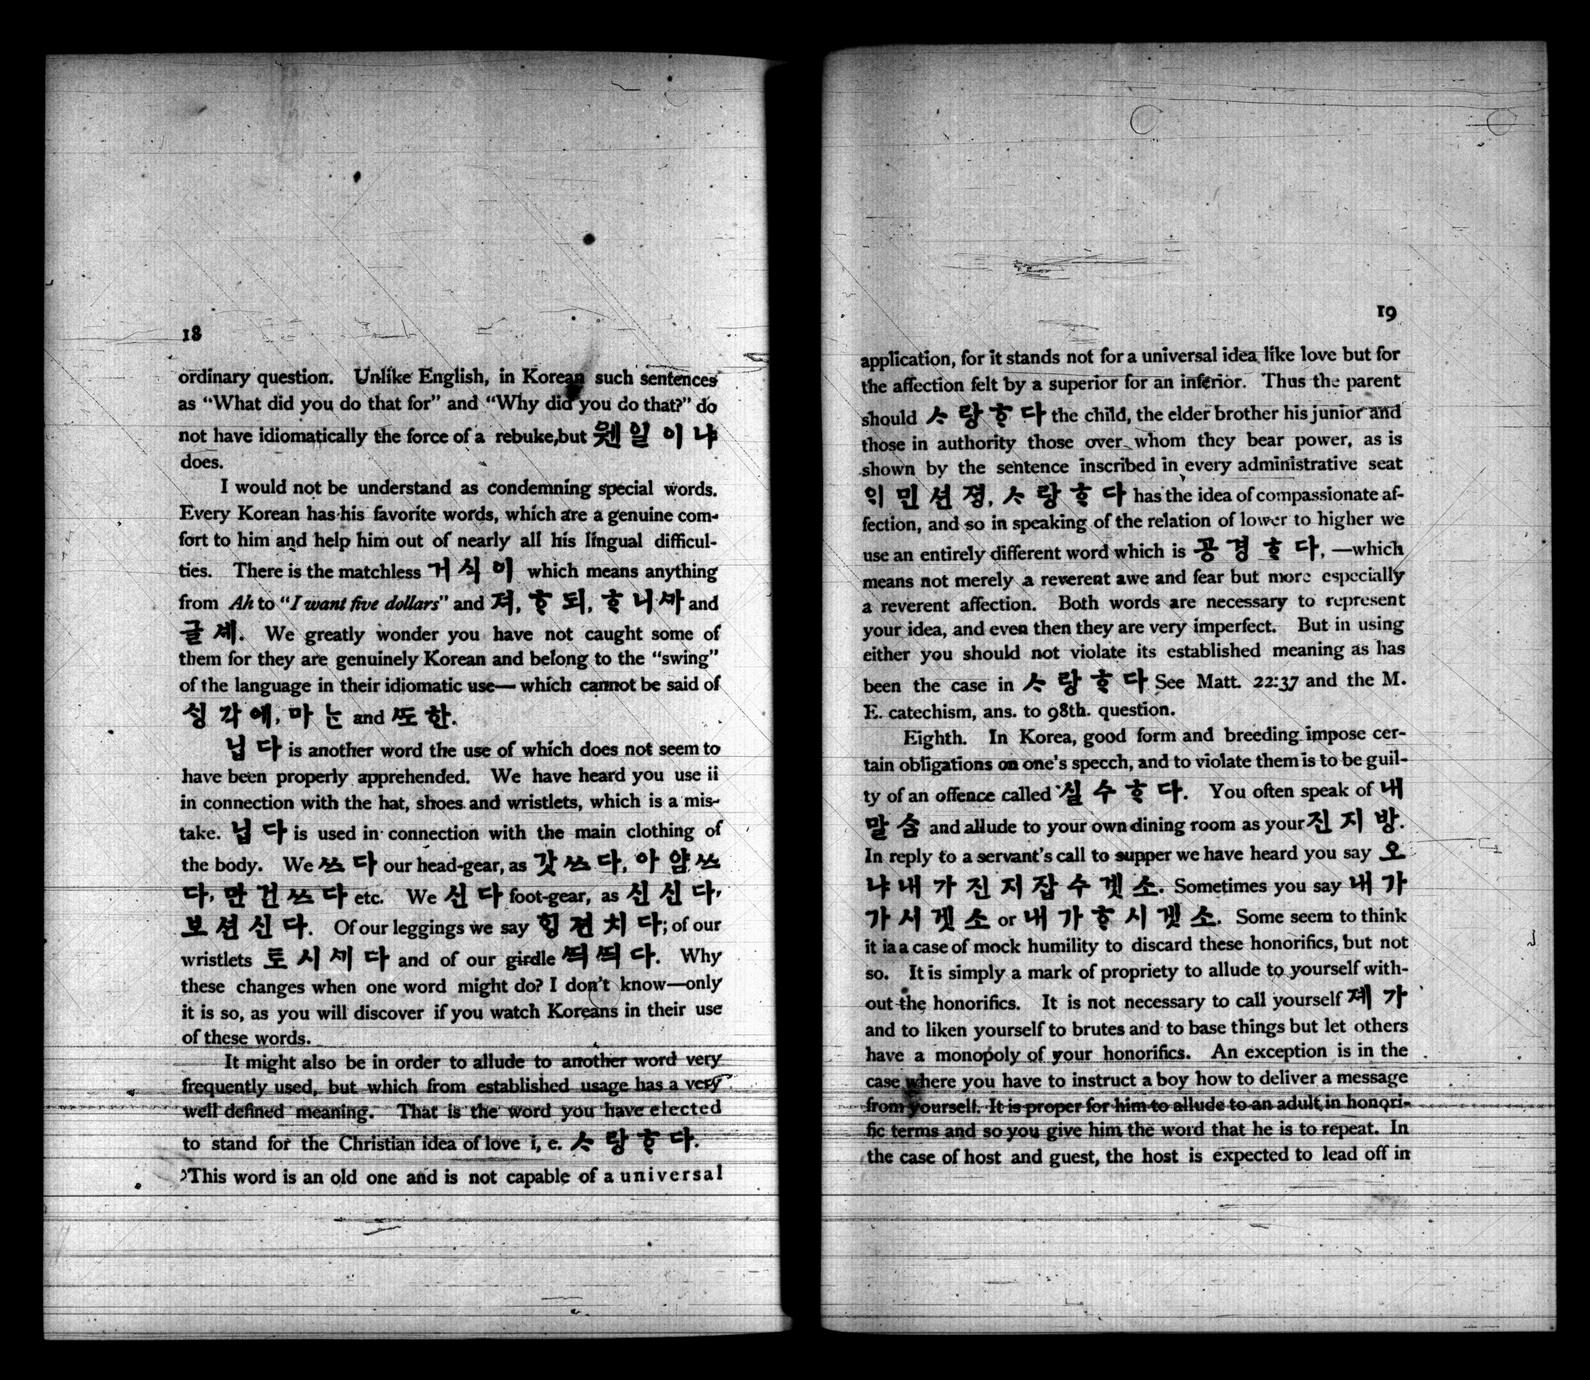 18
ordinary question. Unlike English, in Korean such sentences
as “What did you do that for” and “Why did you do that?” do
not have idiomatically the force of a rebuke,but 웬 일 이 냐
does.
I would not be understand as condemning special words.
Every Korean has his favorite words, which are a genuine com-
fort to him and help him out of nearly all his lingual difficul-
ties. There is the matchless 거 식 이 which means anything
from Ah to “I want five dollars” and 져, ᄒᆞ 되, ᄒᆞ 니 ᄭᅡ and
글 셰. We greatly wonder you have not caught some of
them for they are genuinely Korean and belong to the “swing”
of the language in their idiomatic use— which cannot be said of
싱 각 에, 마 ᄂᆞᆫ and ᄯᅩ 한.
닙 다 is another word the use of which does not seem to
have been properly apprehended. We have heard you use ii
in connection with the hat, shoes and wristlets, which is a mis-
take. 닙 다 is used in connection with the main clothing of
the body. We 쓰 다 our head-gear, as 갓 쓰 다, 아 암 쓰
다, 만 건 쓰 다 etc. We 신 다 foot-gear, as 신 신 다,
보 션 신 다. Of our leggings we say 힝 젼 치 다; of our
wristlets 토 시 ᄭᅵ 다 and of our girdle ᄯᅴ ᄯᅴ 다. Why
these changes when one word might do? I don't know—only
it is so, as you will discover if you watch Koreans in their use
of these words.
It might also be in order to allude to another word very
frequently used, but which from established usage has a very
well defined meaning. That is the word you have elected
to stand for the Christian idea of love i, e. ᄉᆞ 랑 ᄒᆞ 다.
This word is an old one and is not capable of a universal
19
application, for it stands not for a universal idea like love but for
the affection felt by a superior for an inferior. Thus the parent
should ᄉᆞ 랑 ᄒᆞ 다 the child, the elder brother his junior and
those in authority those over whom they bear power, as is
shown by the sentence inscribed in every administrative seat
익 민 션 졍, ᄉᆞ 랑 ᄒᆞ 다 has the idea of compassionate af-
fection, and so in speaking of the relation of lower to higher we
use an entirely different word which is 공 경 ᄒᆞ 다, —which
means not merely a reverent awe and fear but more especially
a reverent affection. Both words are necessary to represent
your idea, and even then they are very imperfect. But in using
either you should not violate its established meaning as has
been the case in ᄉᆞ 랑 ᄒᆞ 다 See Matt. 22:37 and the M.
E. catechism, ans. to 98th. question.
Eighth. In Korea, good form and breeding impose cer-
tain obligations on one's speech, and to violate them is to be guil-
ty of an offence called 실 수 ᄒᆞ 다. You often speak of 내
말 ᄉᆞᆷ and allude to your own dining room as your 진 지 방.
In reply to a servant's call to supper we have heard you say 오
냐 내 가 진 지 잡 수 겟 소. Sometimes you say 내 가
가 시 겟 소 or 내 가 ᄒᆞ 시 겟 소. Some seem to think
it is a case of mock humility to discard these honorifics, but not
so. It is simply a mark of propriety to allude to yourself with-
out the honorifics. It is not necessary to call yourself 졔 가
and to liken yourself to brutes and to base things but let others
have a monopoly of your honorifics. An exception is in the
case where you have to instruct a boy how to deliver a message
from yourself. It is proper for him to allude to an adult in honori-
fic terms and so you give him the word that he is to repeat. In
the case of host and guest, the host is expected to lead off in